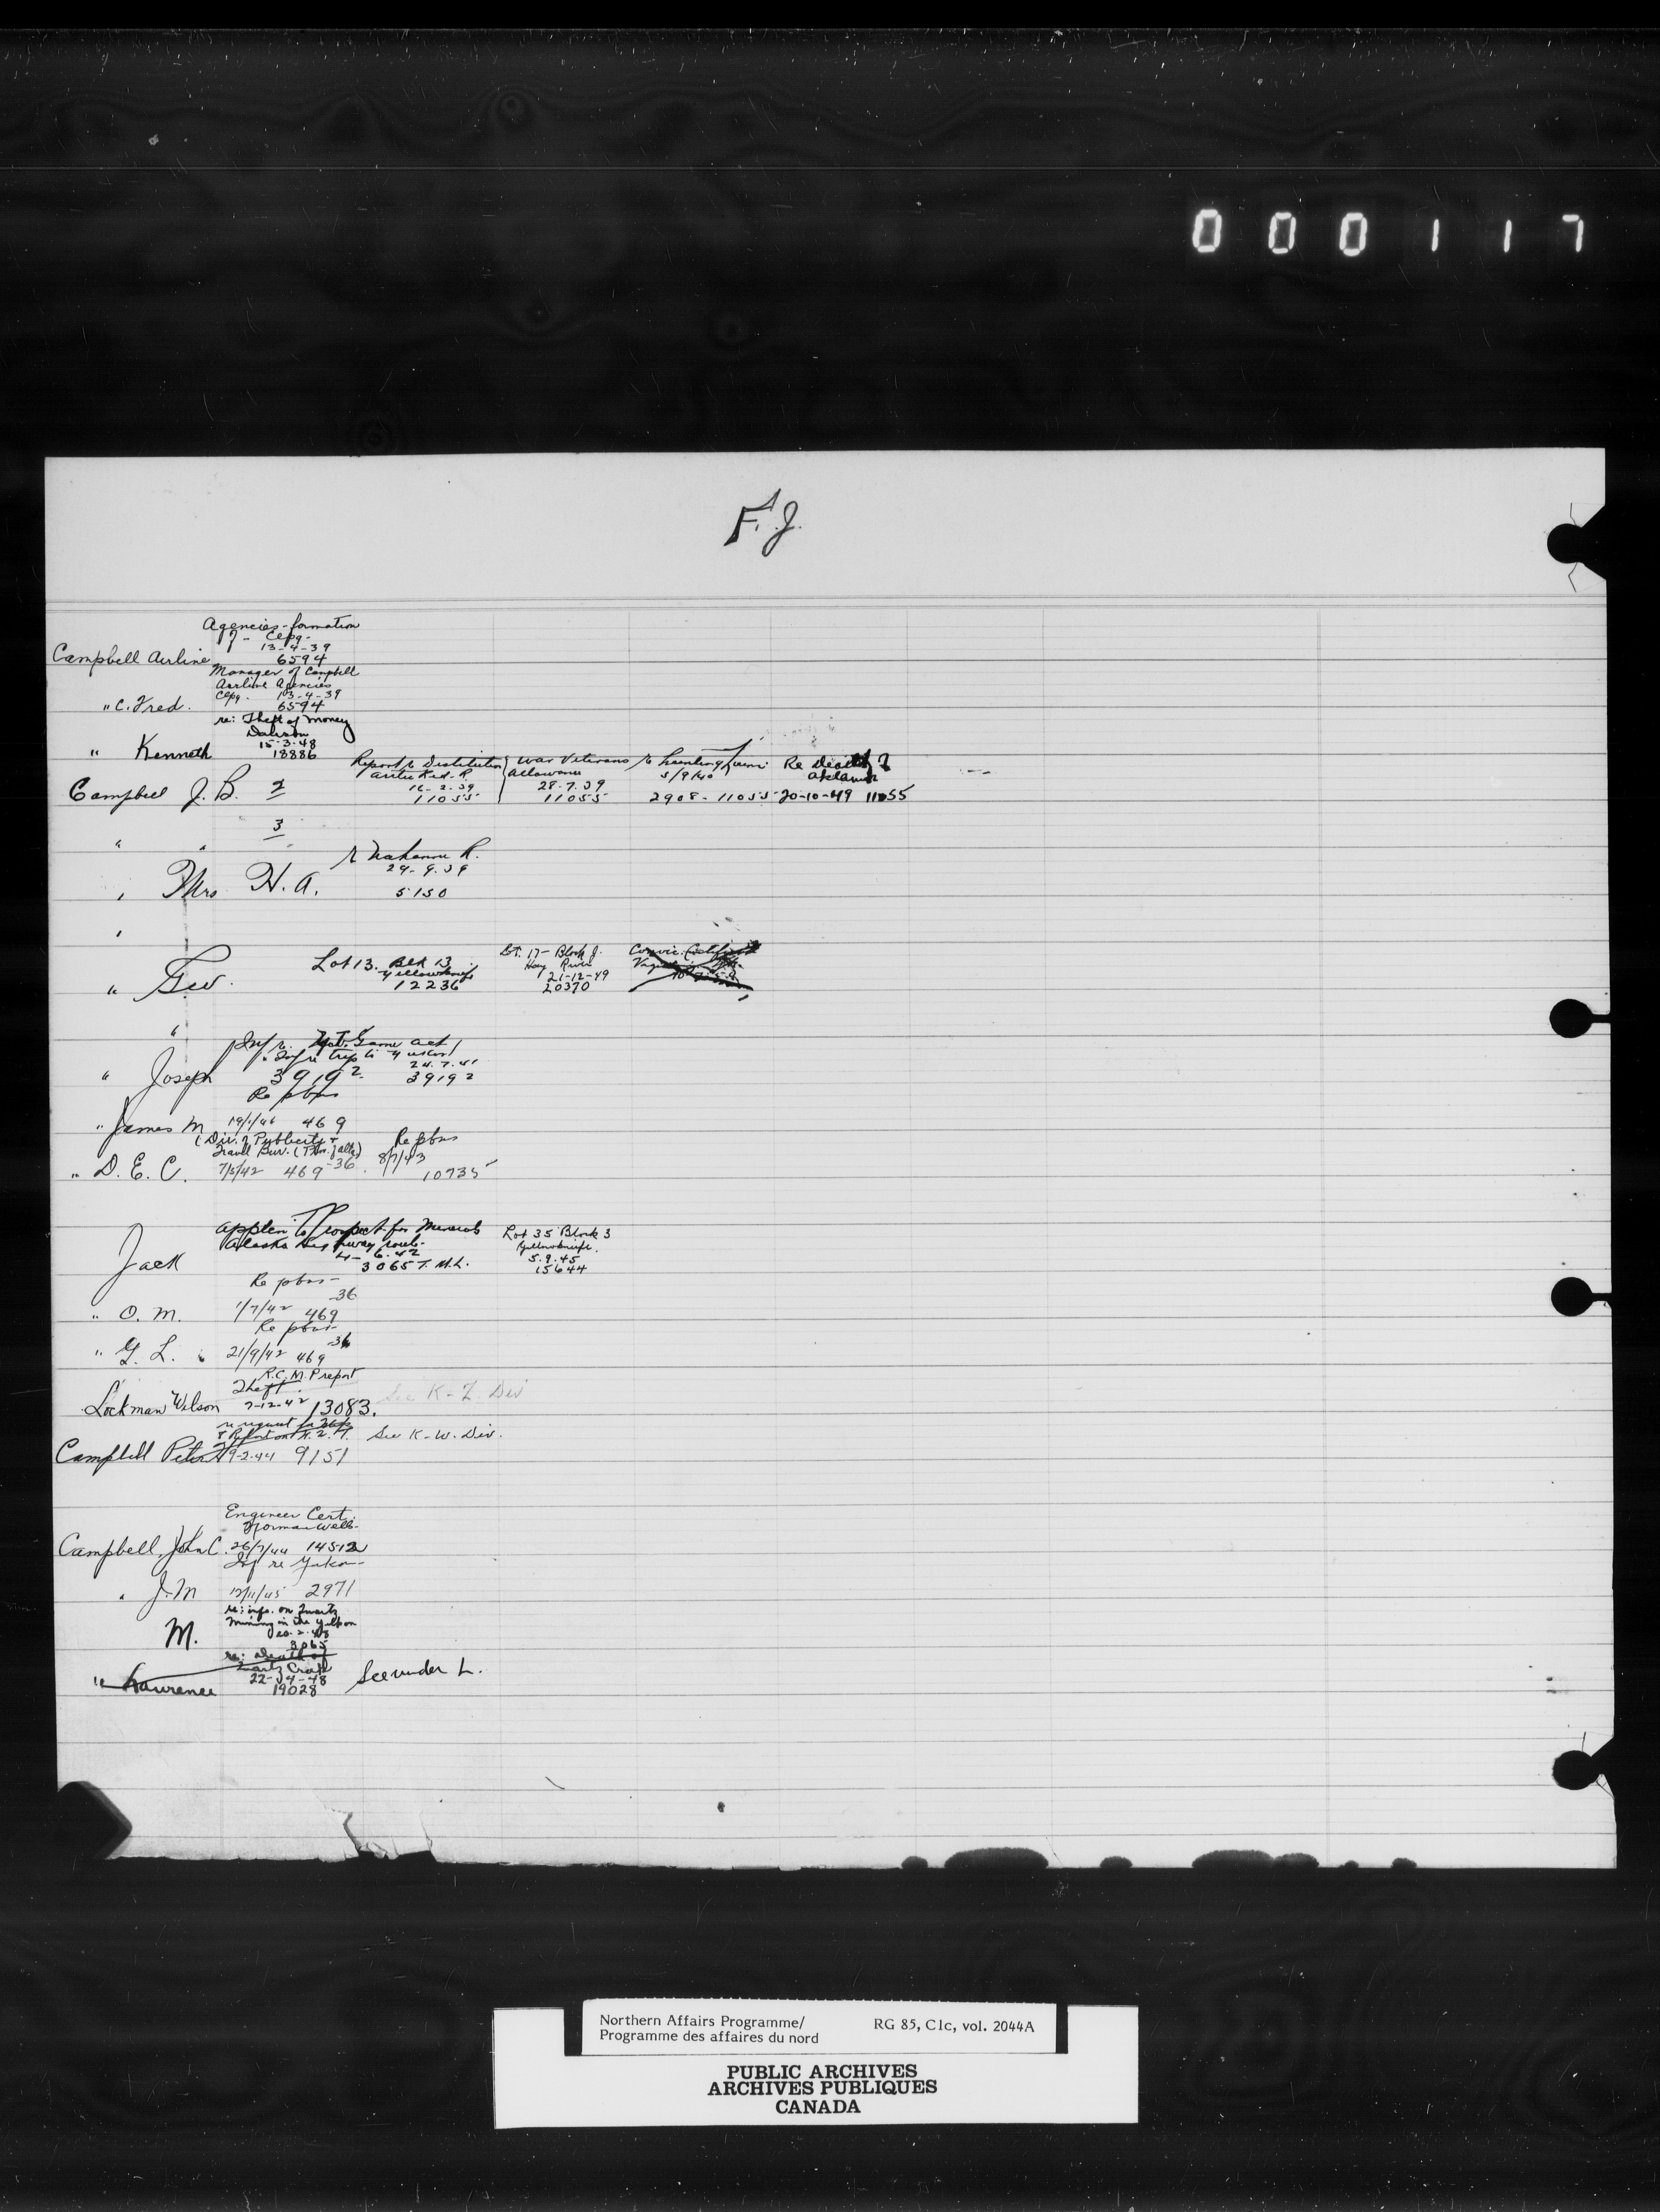 000117
F. J.
Agencies-formation
of - Cepg-
13-4-39
Campbell Airline 6594
Manager of Campbell
Airline Agencies
Cepg. 13-4-39
" C. Fred. 6594
re: Theft of money
Dawson
15-3-48
" Kenneth 18886
Report re Destitution War Veterans re hunting Re Death of
Arctic Red. R. Allowance 5/9/40 Aklavik
16-2-39 28.7.39
Campbell J. B. 2 11055 11055 2908-11055 20-10-49 11055
" " 3
re Nahanni R.
29-9-39
" Mrs H. A. 5150
"
Lot 13. Blk 13 Lot. 17- Block J.
Yellowknife Hay River
21-12-49
" Geo. 12236 20370
"
Inf re. Game Act
Inf re trip to Yukon
24.7.41
" Joseph 39192 39192
Re pbns
" James M 19/1/46 469
(Div. of Publicity +
Travel Bur. Re pbns
" D. E. C. 7/5/42 469-36. 8/7/43 10735
Appln to Prospect for Minerals Lot 35 Block 3
Alaska Highway route Yellowknife.
4-6-42 5.9.45
Jack 3065 T. M. L. 15644
Re pbns-
" O. M. 1/7/42 469-36
Re pbns-
" G. L. 21/9/42 469-36
R.C.M.P report
Theft.
Lockman Wilson 7-12-42 13083. See K-Z Div
re request for
& Report on N.W.T. See K-W. Div.
Campbell Peter 9-2-44 9151
Engineer Cert.
Norman Wells-
Campbell, John C. 26/7/44 14512
Inf re Yukon-
" J. M 12/11/45 2971
re: info. on Quartz
Mining in the Yukon
M. 3065
re: Death of
Quartz Creek
22-04-48
" Lawrence 19028 See under L.
Northern Affairs Programme/
Programme des affaires du nord
RG 85, C1c, vol. 2044A
PUBLIC ARCHIVES
ARCHIVES PUBLIQUES
CANADA